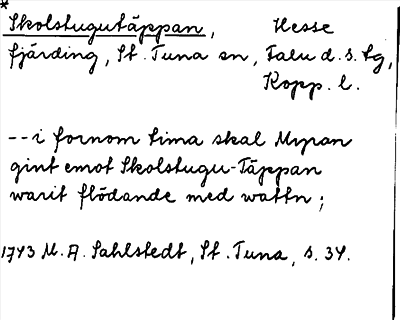 *
Skolstugutäppan, Hesse
fjärding, St. Tuna sn, Falu d. s. tg,
Kopp. l.
--i fornom tima skal Myran
gint emot Skolstugu-Täppan
warit flödande med wattn;
1743 M. A. Sahlstedt, St. Tuna, s. 34.